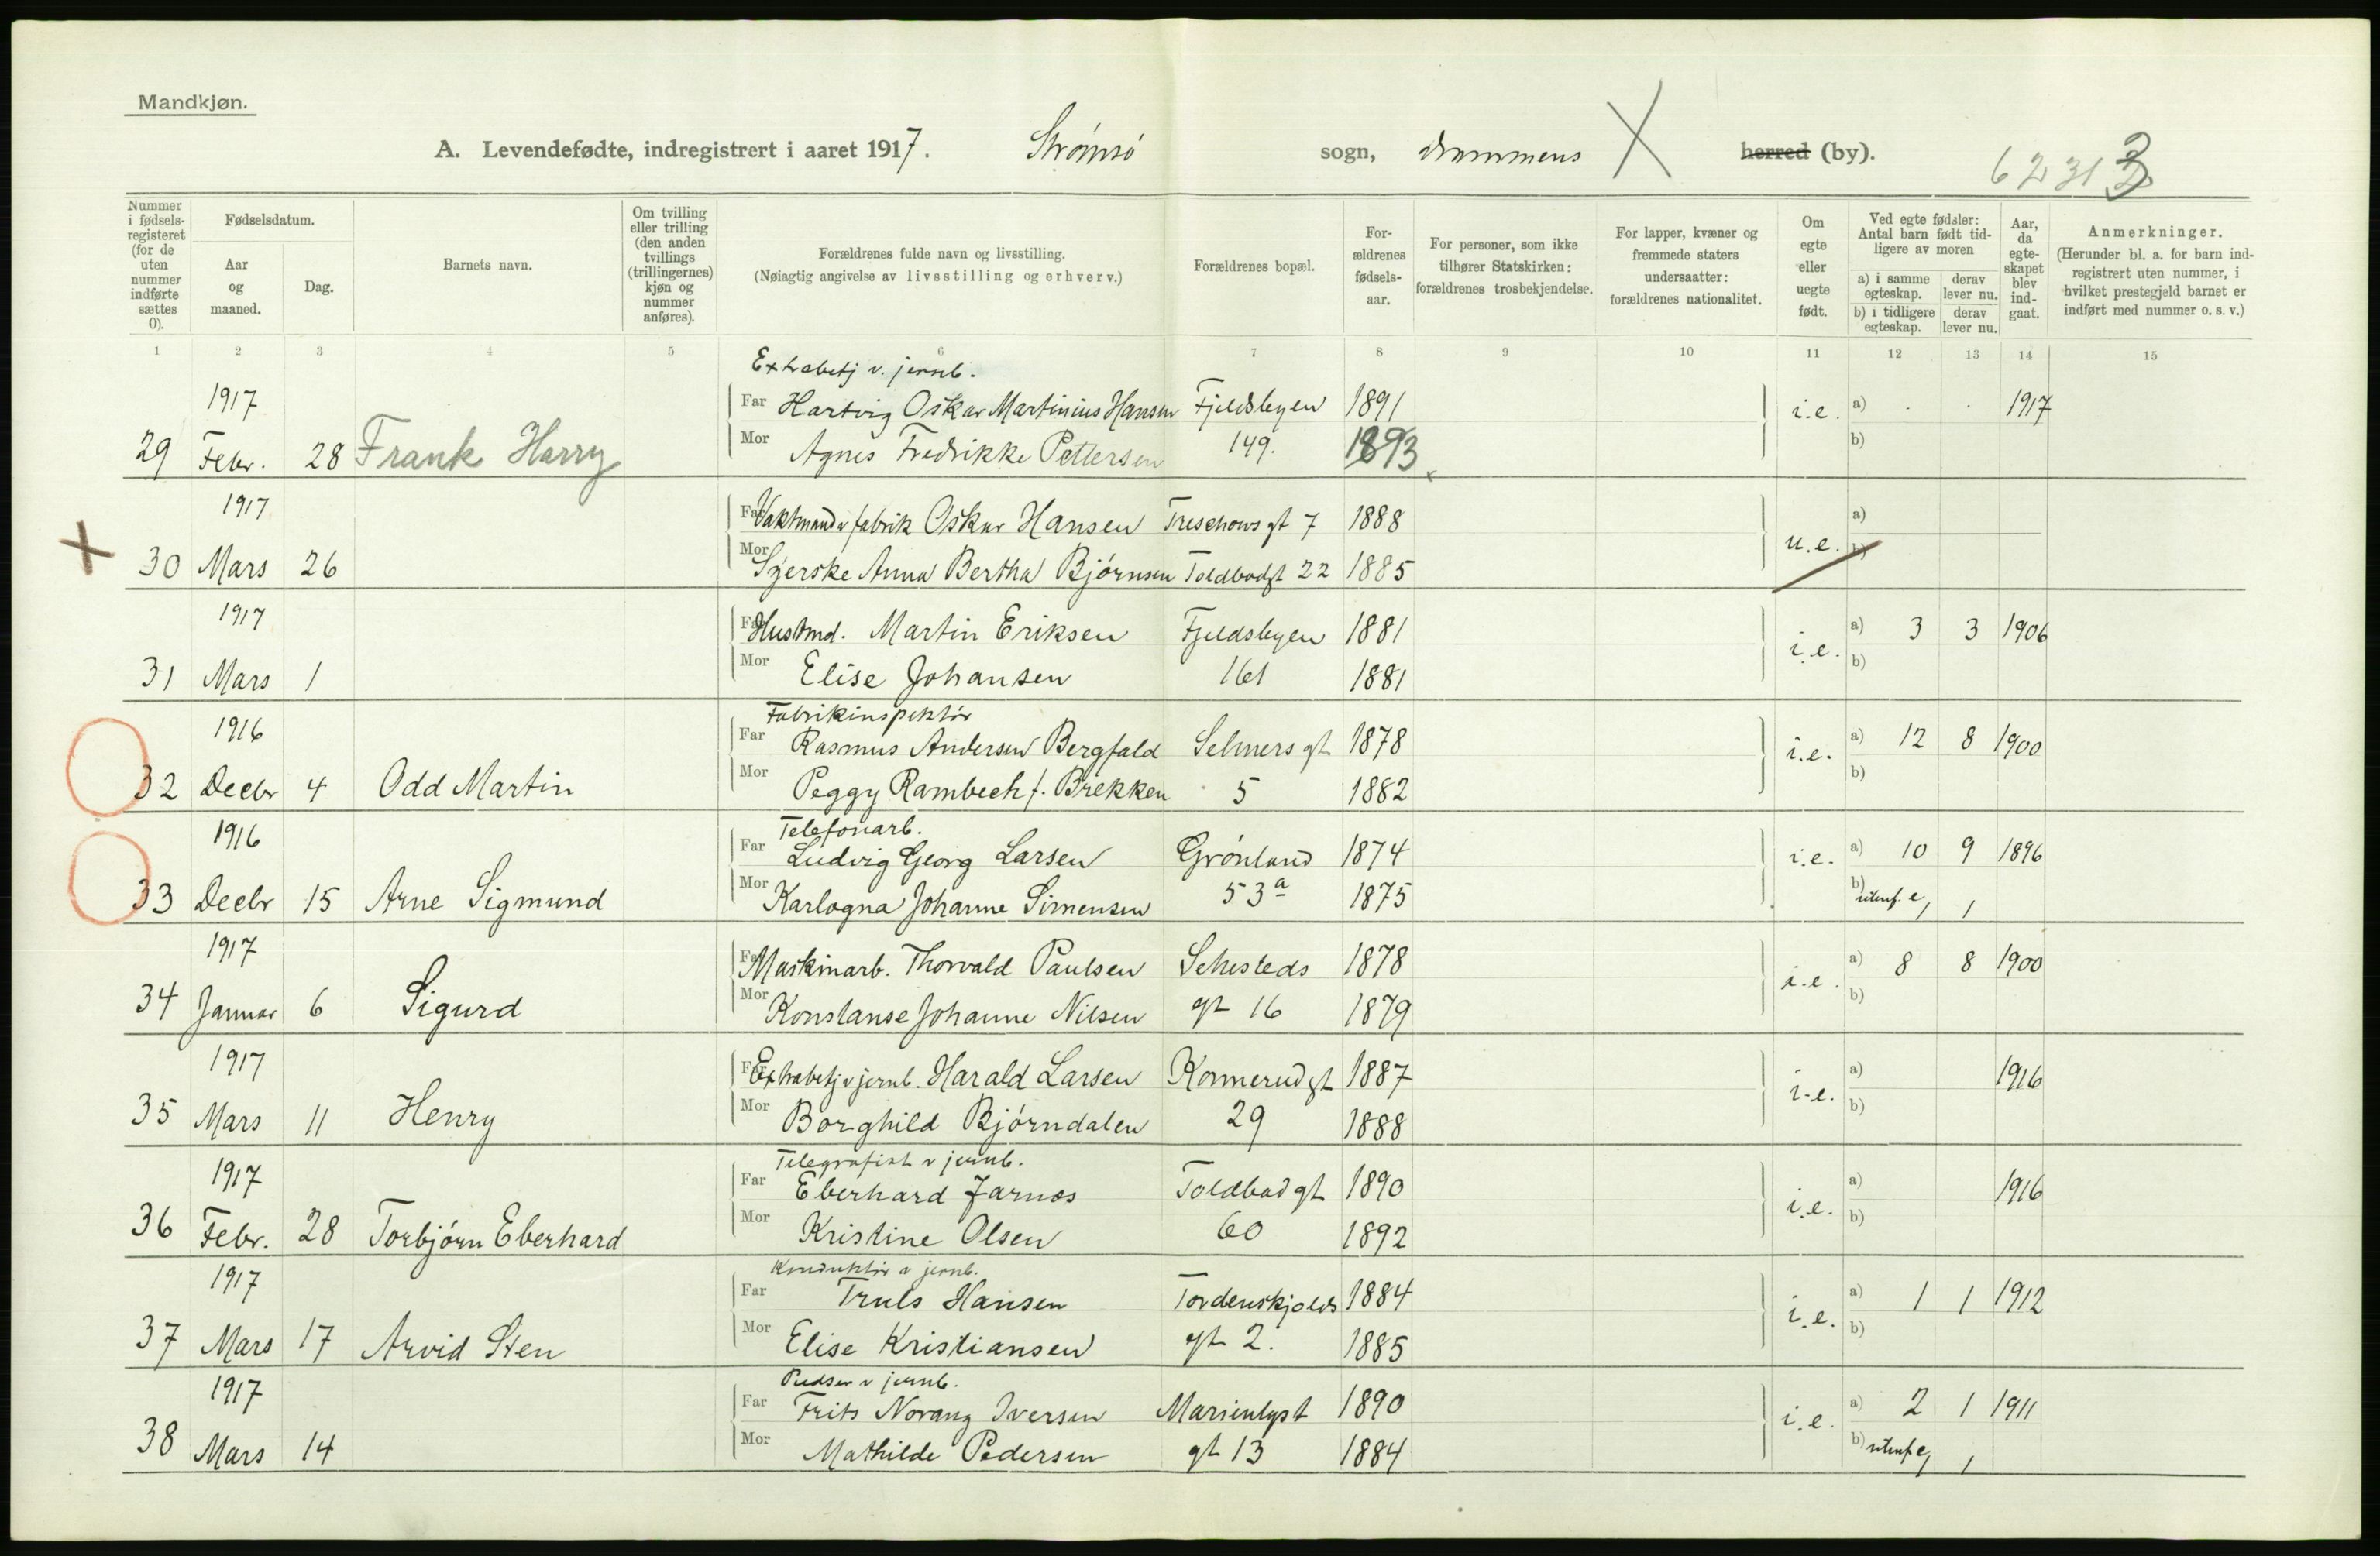 Mandkjøn.
A. Levendefødte, indregistrert i aaret 1917. Strømsø sogn, Drammens herred (by). 6231
Nummer i fødselsregisteret (for de uten nummer indførte sættes 0).
Fødselsdatum.
Aar og maaned.
Dag.
Barnets navn.
Om tvilling eller trilling (den anden tvillings (trillingernes) kjøn og nummer anføres).
Forældrenes fulde navn og livsstilling.
(Nøiagtig angivelse av livsstilling og erhverv.)
Forældrenes bopæl.
Forældrenes fødselsaar.
For personer, som ikke tilhører Statskirken: forældrenes trosbekjendelse.
For lapper, kvæner og fremmede staters undersaatter: forældrenes nationalitet.
Om egte eller uegte født.
Ved egte fødsler: Antal barn født tidligere av moren
a) i samme egteskap. derav lever nu.
b) i tidligere egteskap. derav lever nu.
Aar, da egteskapet blev indgaat.
Anmerkninger.
(Herunder bl. a. for barn indregistrert uten nummer, i hvilket prestegjeld barnet er indført med nummer o. s. v.)
1 2 3 4 5 6 7 8 9 10 11 12 13 14 15
Extrabetj v. jernb.
1917 Far Hartvig Oskar Martinius Hansen Fjeldsbyen 1891 i.e. a) . . 1917
29 Febr. 28 Frank Harry Mor Agnes Fredrikke Pettersen 149. 1893 b)
1917 Far Vaktmand v fabrik Oskar Hansen Treschows gt 7 1888 u.e. a)
30 Mars 26 Mor Syerske Anna Bertha Bjørnsen Toldbodgt 22 1885 b)
1917 Far Hustmd. Martin Eriksen Fjeldsbyen 1881 i.e. a) 3 3 1906
31 Mars 1 Mor Elise Johansen 161 1881 b)
Fabrikinspektør
1916 Far Rasmus Andersen Bergfald Selmers gt 1878 i.e. a) 12 8 1900
32 Decbr 4 Odd Martin Mor Peggy Rambech f. Brekken 5 1882 b)
Telefonarb.
1916 Far Ludvig Georg Larsen Grønland 1874 i.e. a) 10 9 1896
33 Decbr 15 Arne Sigmund Mor Karlogna Johanne Simensen 53a 1875 b) utenf. e, 1 1
1917 Far Maskinarb. Thorvald Paulsen Sehesteds 1878 i.e. a) 8 8 1900
34 Januar 6 Sigurd Mor Konstanse Johanne Nilsen gt 16 1879 b)
1917 Far Extrabetj v jernb. Harald Larsen Konnerudgt 1887 i.e. a) 1916
35 Mars 11 Henry Mor Borghild Bjørndalen 29 1888 b)
Telegrafist v jernb.
1917 Far Eberhard Jarnæs Toldbodgt 1890 i.e. a) 1916
36 Febr. 28 Torbjørn Eberhard Mor Kristine Olsen 60 1892 b)
Konduktør v jernb.
1917 Far Truls Hansen Tordenskjolds 1884 i.e. a) 1 1 1912
37 Mars 17 Arvid Sten Mor Elise Kristiansen gt 2. 1885 b)
Pudser v jernb.
1917 Far Frits Norang Iversen Marienlyst 1890 i.e. a) 2 1 1911
38 Mars 14 Mor Mathilde Pedersen gt 13 1884 b) utenf e, 1 1